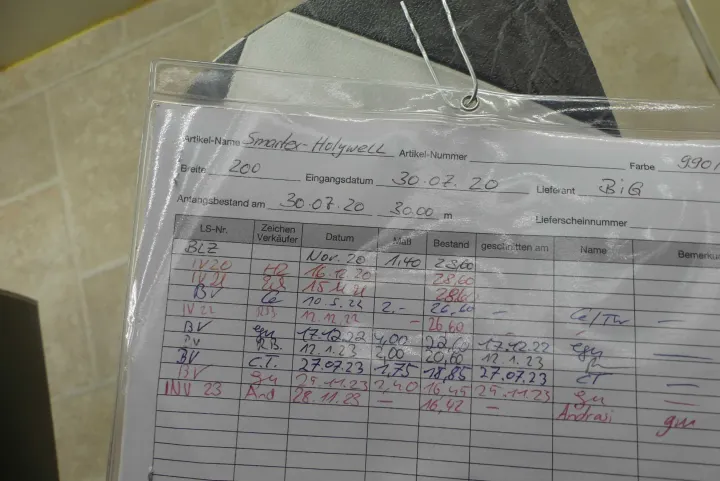 Artikel-Name Smartex-Holywell Artikel-Nummer Farbe 990
Breite 200 Eingangsdatum 30.07.20 Lieferant BiG
Anfangsbestand am 30.07.20 30,00 m Lieferscheinnummer
LS-Nr. Zeichen Verkäufer Datum Maß Bestand geschnitten am Name Bemerku
BLZ Nov. 20 1,40 28,60
IV 20 16.12.20 28,60
IV 21 28,60
BV Ce 10.5.22 2,- 26,60 -
IV 22 12.12.22 - 26,60 -
BV 17.12.22 4,00 22,60 17.12.22
BV R.B. 12.1.23 2,00 20,60 12.1.23
BV C.T. 27.07.23 1,75 18,85 27.07.23 CT
BV gu 29.11.23 2,40 16,45 29.11.23 gu
INV 23 And 28.11.23 - 16,42 - Andrasi gu